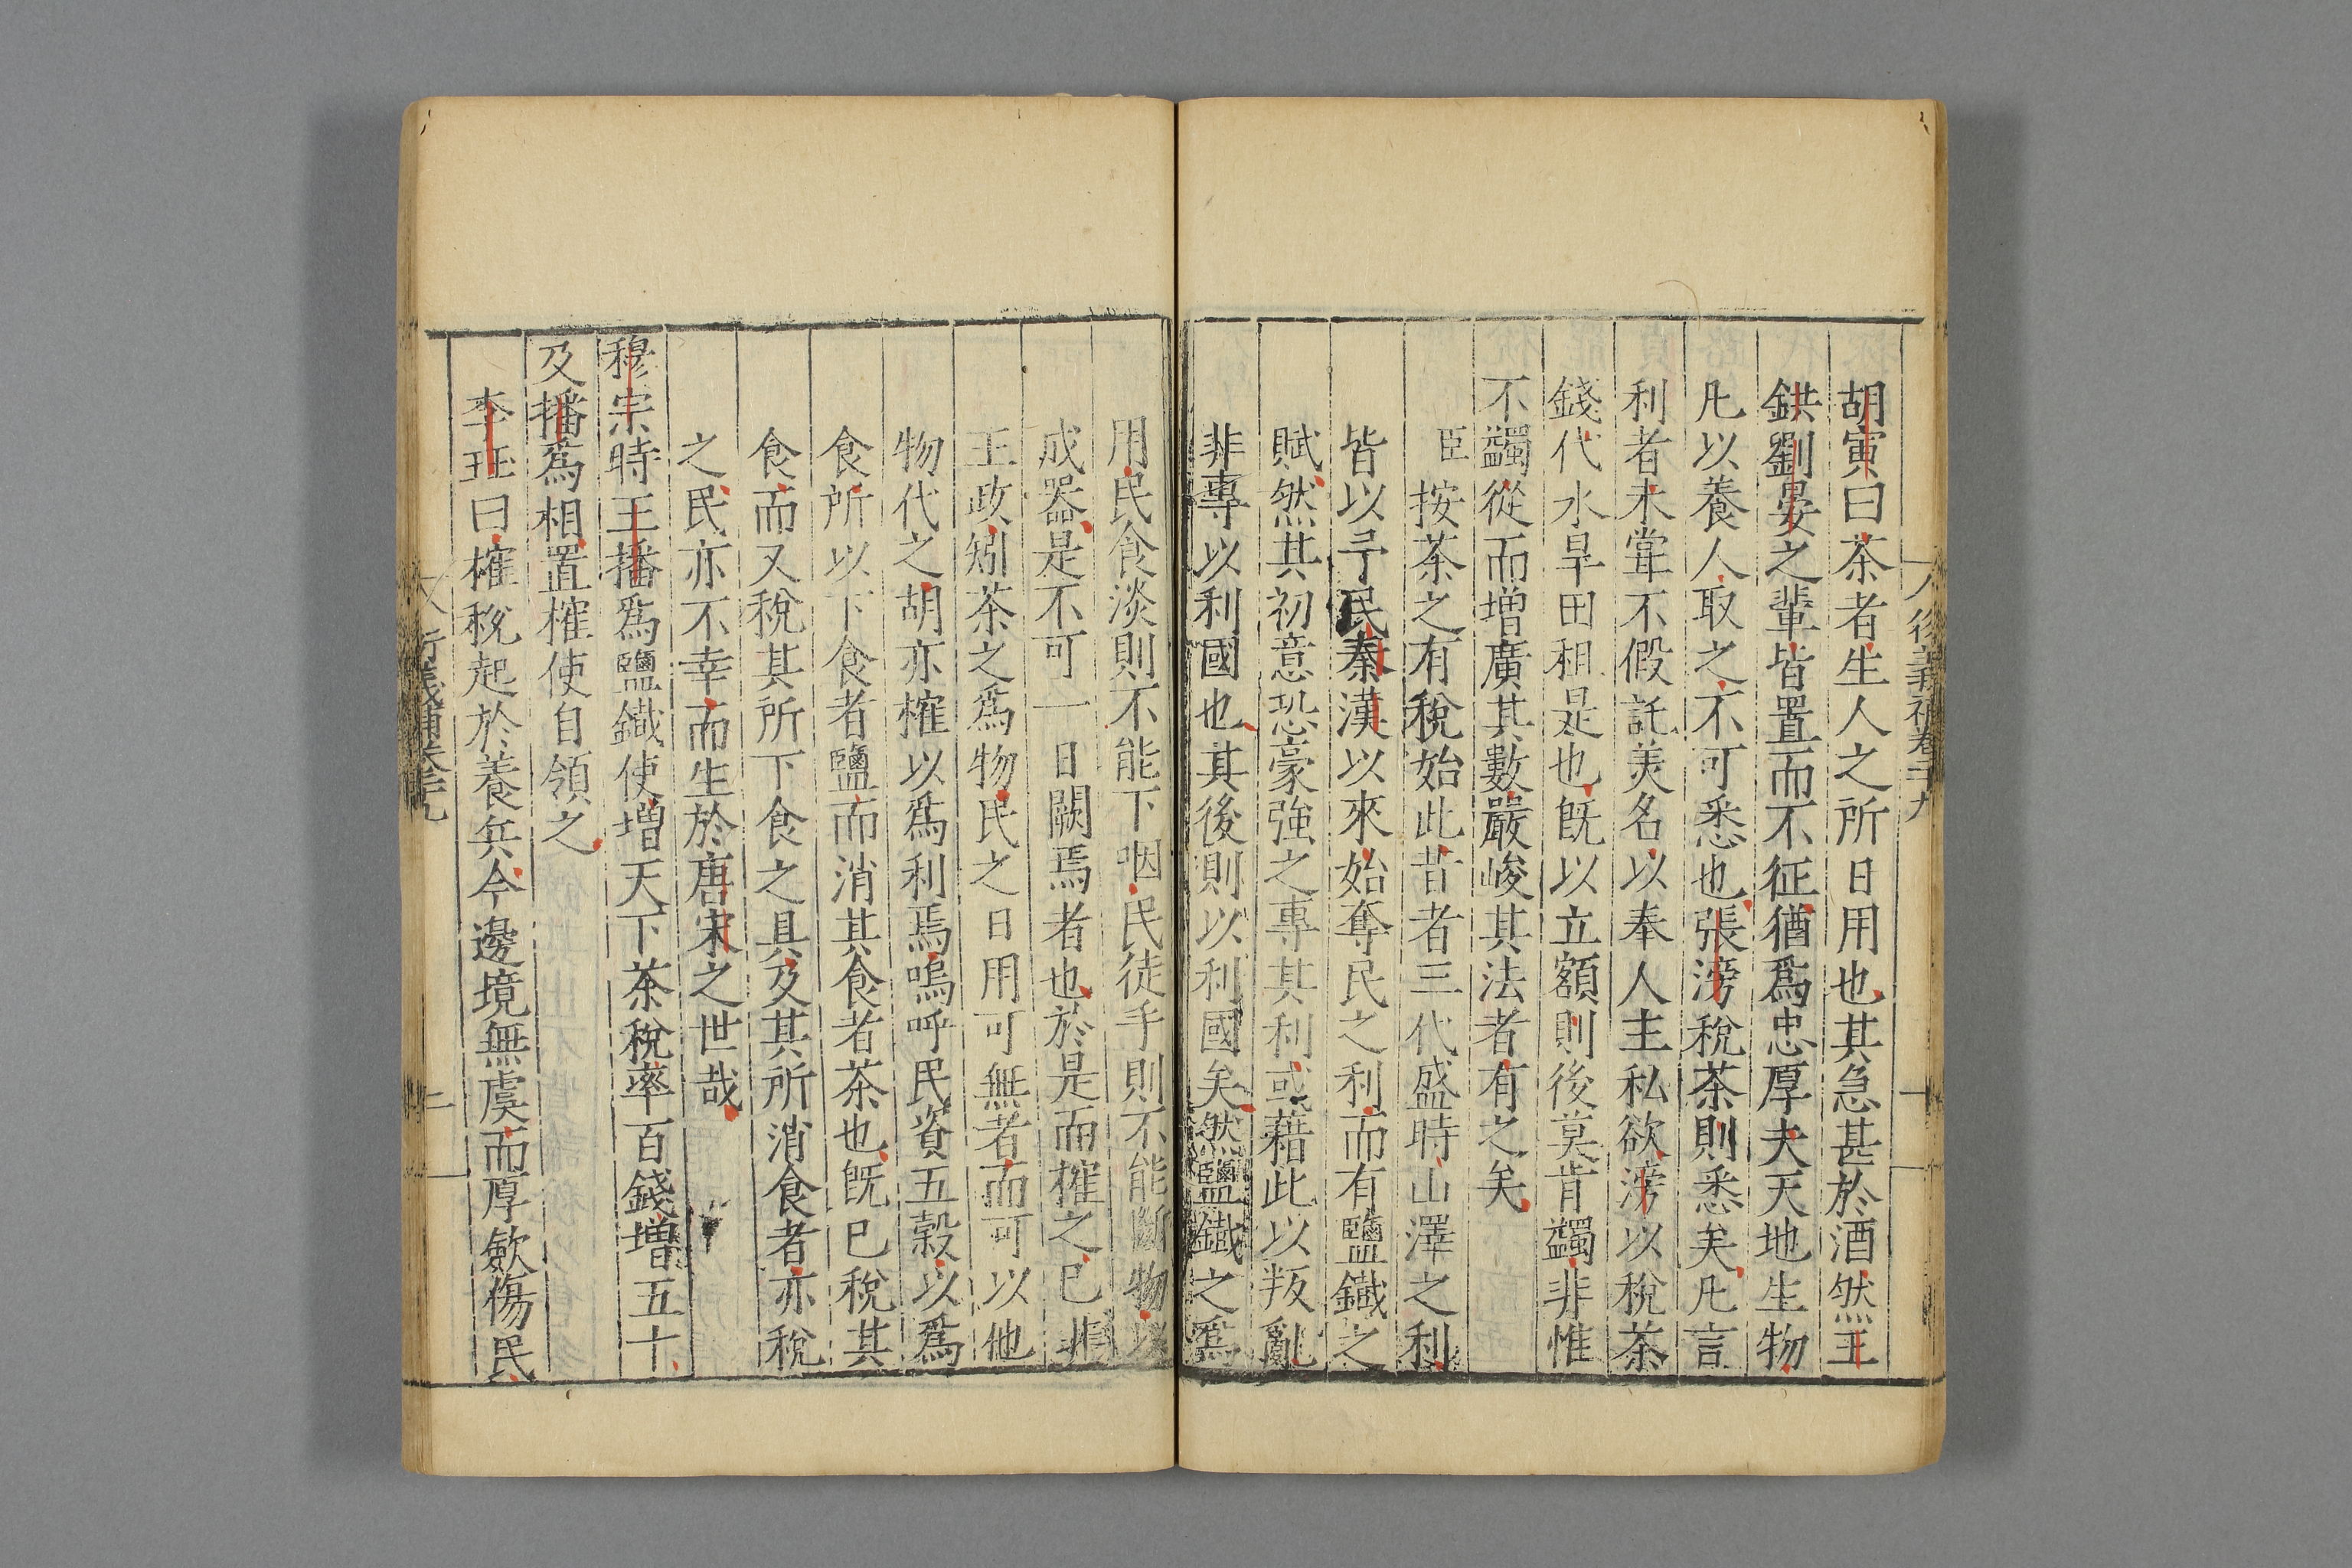 胡寅曰茶者生人之所日用也其急甚於酒然王
鉷劉晏之輩皆置而不征猶爲忠厚夫天地生物
凢以養人取之不可悉也張滂稅茶則悉矣凢言
利者未甞不假託美名以奉人主私欲滂以稅茶
錢代水旱田租是也旣以立額則後莫肯蠲非惟
不蠲從而增廣其數嚴峻其法者有之矣
臣按茶之有稅始此昔者三代盛時山澤之利
皆以予民秦漢以來始奪民之利而有鹽鐵之
賦然其初意恐豪強之專其利或藉此以叛亂
非專以利國也其後則以利國矣然鹽鐵之爲
用民食淡則不能下咽民徒手則不能斷物以
成器是不可一日闕焉者也於是而榷之已非
王政矧茶之爲物民之日用可無者而可以他
物代之胡亦榷以爲利焉嗚呼民資五穀以爲
食所以下食者鹽而消其食者茶也旣巳稅其
食而又稅其所下食之具及其所消食者亦稅
之民亦不幸而生於唐宋之世哉
穆宗時王播爲鹽鐵使增天下茶稅率百錢增五十
及播爲相置榷使自領之
李玨曰榷稅起於養兵今邊境無虞而厚歛傷民
衍義補卷二十九 二